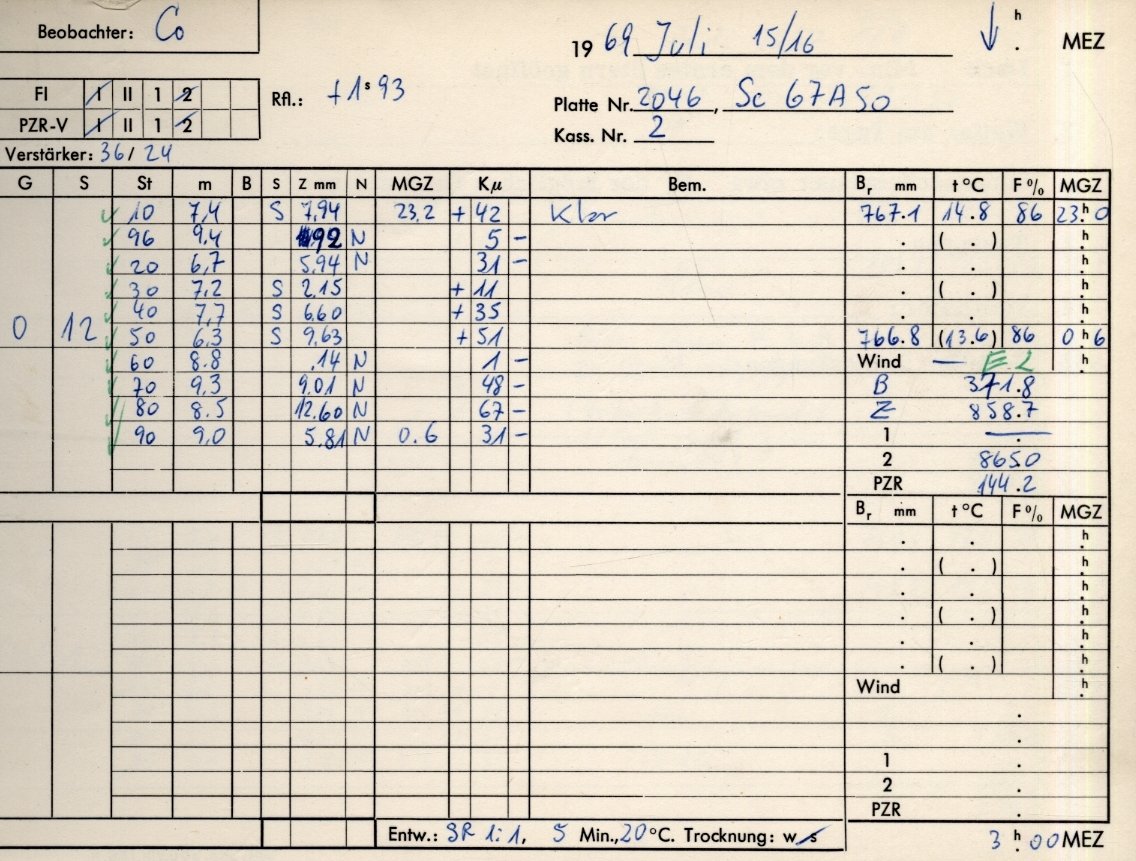 Beobachter: Co
19 69 Juli 15/16 ↓ h . MEZ
FI I II 1 2
Rfl.: +1ˢ93
Platte Nr. 2046, Sc 67A50
PZR-V I II 1 2
Kass. Nr. 2
Verstärker: 36/24
G S St m B S Z mm N MGZ Kμ Bem. Br mm t°C F% MGZ
10 7,4 S 7,94 23,2 + 42 Klar 767.1 14.8 86 23h0
96 9,4 92 N 5 – . ( . ) h
20 6,7 5,94 N 31 – . . h
30 7,2 S 2,15 + 11 . ( . ) h
40 7,7 S 6,60 + 35 . . h
0 12 50 6,3 S 9,63 + 51 766.8 (13.6) 86 0h6
60 8.8 .14 N 1 – Wind — E 2 h
70 9,3 9,01 N 48 – B 371.8
80 8.5 12.60 N 67 – Z 858.7
90 9,0 5.81 N 0.6 31 – 1 — .
2 865.0
PZR 144.2
Br mm t°C F% MGZ
. . h
. ( . ) h
. . h
. ( . ) h
. . h
. ( . ) h
Wind h
.
.
1 .
2 .
PZR .
Entw.: SR 1:1, 5 Min., 20°C. Trocknung: w s 3h00 MEZ